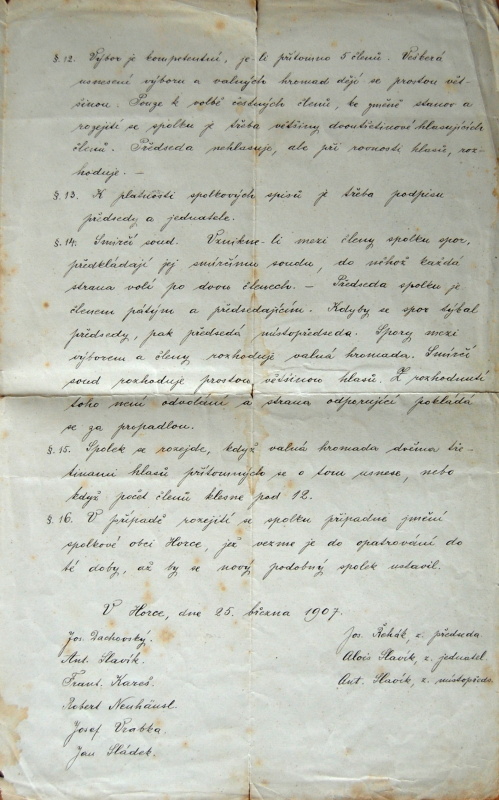 §. 12. Výbor je kompetentní, je-li přítomno 5 členů. Veškerá
usnesení výboru a valných hromad dějí se prostou vět-
šinou. Pouze k volbě čestných členů, ke změně stanov a
rozejití se spolku je třeba většiny dvoutřetinové hlasujících
členů. Předseda nehlasuje, ale při rovnosti hlasů, roz-
hoduje. —
§. 13. K platnosti spolkových spisů je třeba podpisu
předsedy a jednatele.
§. 14. Smírčí soud. Vznikne-li mezi členy spolku spor,
předkládají jej smírčímu soudu, do něhož každá
strana volí po dvou členech. — Předseda spolku je
členem pátým a předsedajícím. Kdyby se spor týkal
předsedy, pak předsedá místopředseda. Spory mezi
výborem a členy rozhoduje valná hromada. Smírčí
soud rozhoduje prostou většinou hlasů. Z rozhodnutí
toho není odvolání a strana odporující pokládá
se za propadlou.
§. 15. Spolek se rozejde, když valná hromada dvěma tře-
tinami hlasů přítomných se o tom usnese, nebo
když počet členů klesne pod 12.
§. 16. V případě rozejití se spolku připadne jmění
spolkové obci Horce, jež vezme je do opatrování do
té doby, až by se nový podobný spolek ustavil.
V Horce, dne 25. března 1907.
Jos. Dachovský.
Jos. Řehák, t. předseda
Ant. Slavík.
Alois Slavík, t. jednatel.
Frant. Kareš.
Ant. Slavík, t. místopředs.
Robert Neuhäusl.
Josef Vrabka.
Jan Sládek.